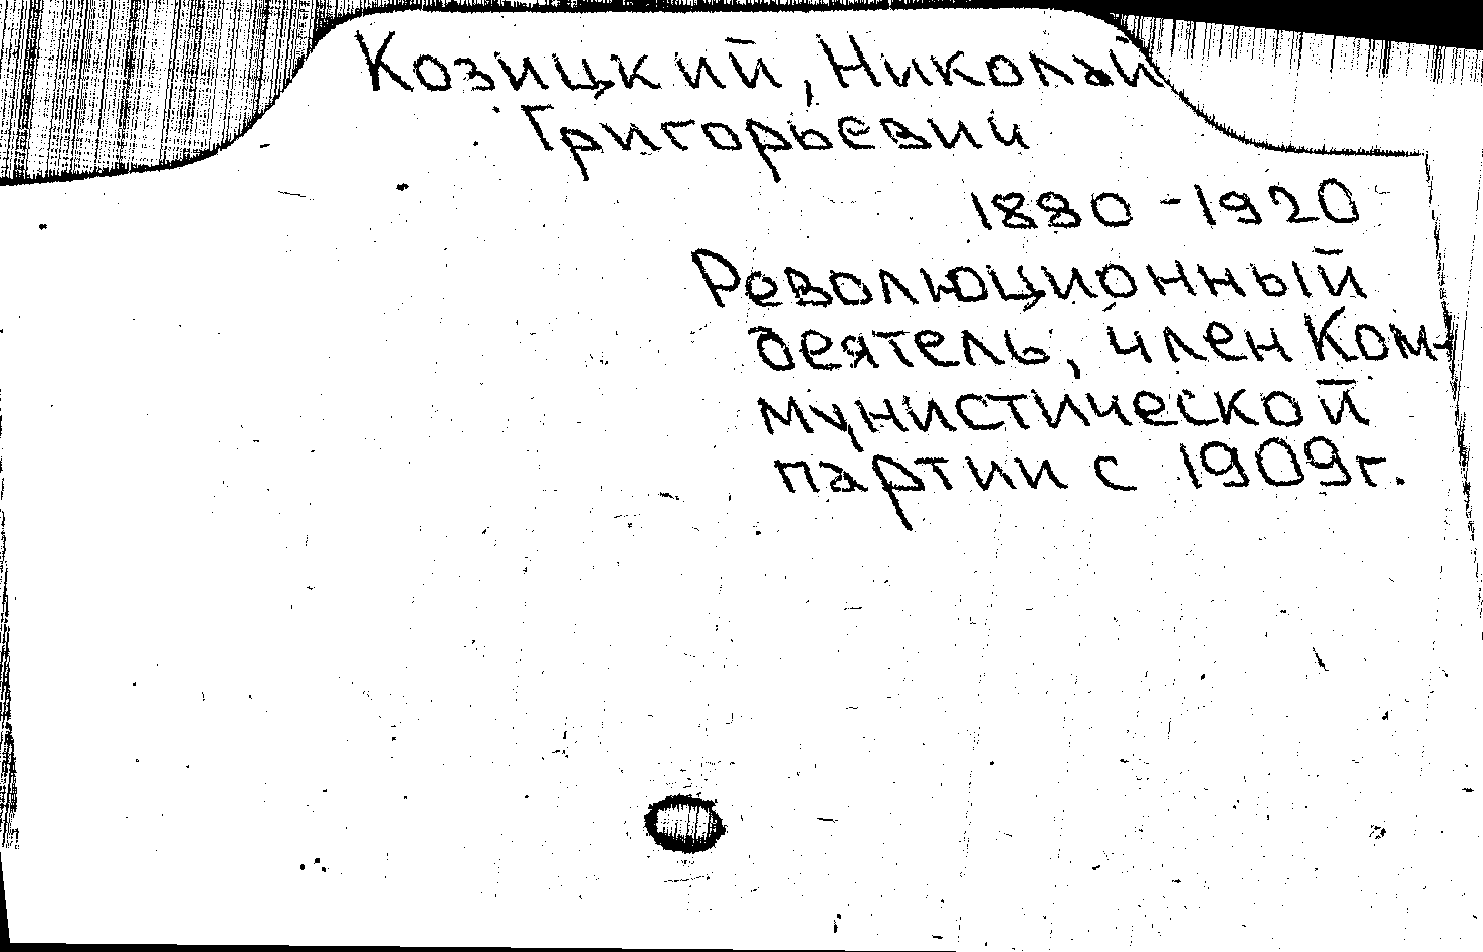 Козицкий, Николай
Григорьевич
1880-1920
Революционный
деятель, член Ком-
мунистической
партии с 1909г.